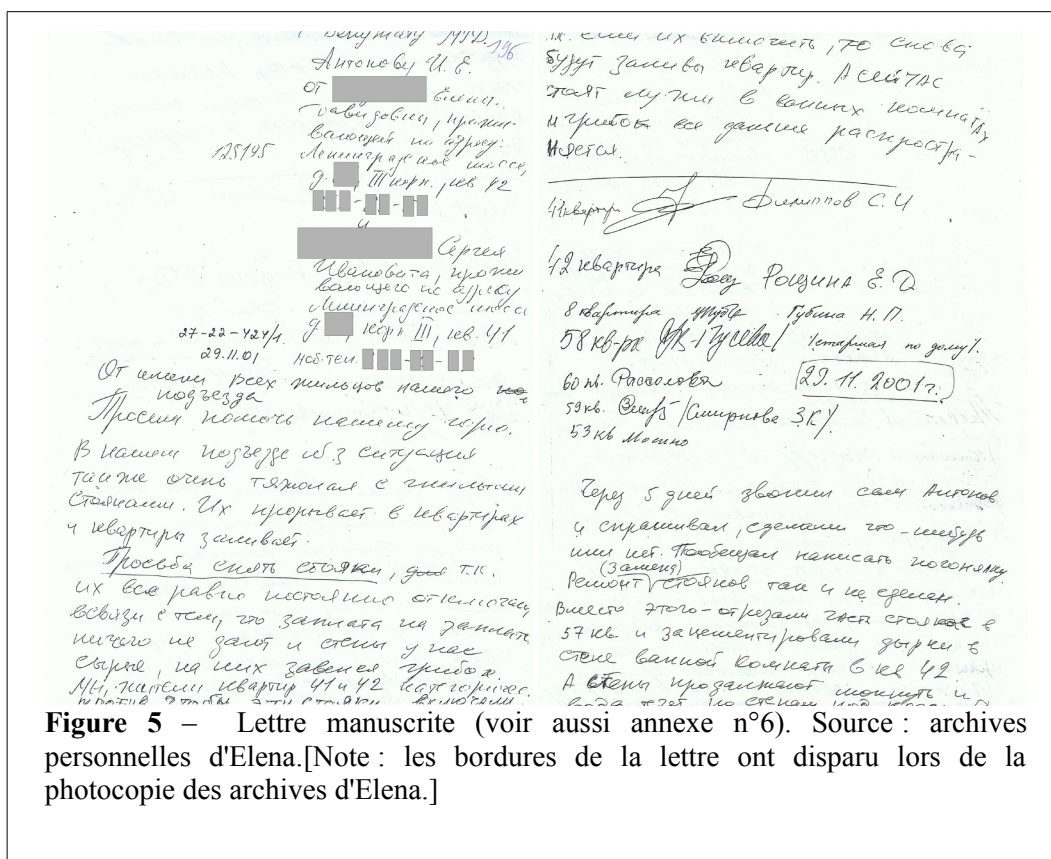 Депутату МГД.
196
Антонову И. Е.
от Елены
Давидовны, прожи-
вающей по адресу:
125195
Ленинградское шоссе,
д. III корп., кв 42
и
Сергея
Ивановича, прожи
вающего по адресу
Ленинградское шоссе
д. корп III, кв. 41
27-22-424/1
29.11.01
моб.тел.
От имени всех жильцов нашего
подъезда
Просим помочь нашему горю.
В нашем подъезде № 3 ситуация
также очень тяжолая с гнилыми
стояками. Их прорывает в квартирах
и квартиры заливает.
Просьба снять стояки, для т.к.
их все равно постоянно отключают
всвязи с тем, что заплата на заплате
ничего не дают и стены у нас
сырые, на них завелся грибок.
Мы, жители квартир 41 и 42 категоричес.
против чтобы эти стояки включали
т.к. если их включить, то снова
будут заливы квартир. А СЕЙЧАС
стоят лужи в ванных комнатах
и грибок все дальше распростра-
няется.
41 квартира Филиппов С. И
42 квартира Рощина Е. Д
8 квартира Губина Н. П.
58 кв-ра /старшая по дому/.
60 кв. Рассолова
29.11.2001г.
59 кв. /Смирнова ЗК/.
53 кв
Через 5 дней звонил сам Антонов
и спрашивал, сделали что-нибудь
или нет. Пообещал написать погонялку
(замена)
Ремонт стояков так и не сделан.
Вместо этого-отрезали часть стояков в
57 кв. и зацементировали дырки в
стене ванной комнаты в кв 42.
А стены продолжают мокнуть и
вода течет по стенам
Figure 5 – Lettre manuscrite (voir aussi annexe n°6). Source : archives
personnelles d'Elena.[Note : les bordures de la lettre ont disparu lors de la
photocopie des archives d'Elena.]